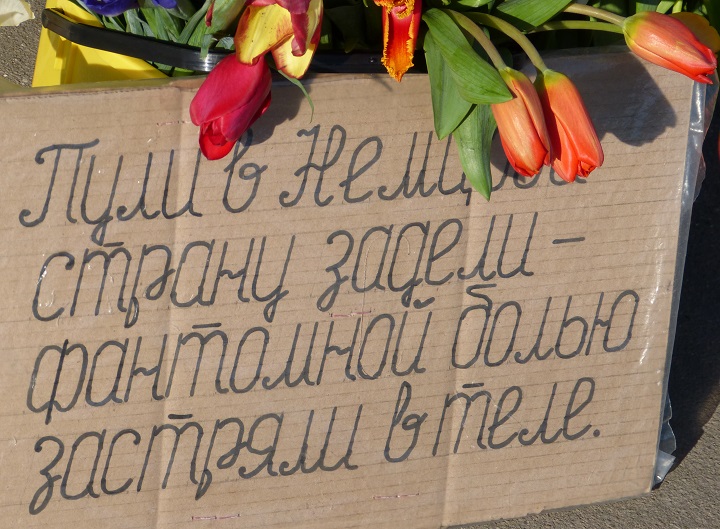 Пули в Немцова
страну задели –
фантомной болью
застряли в теле.